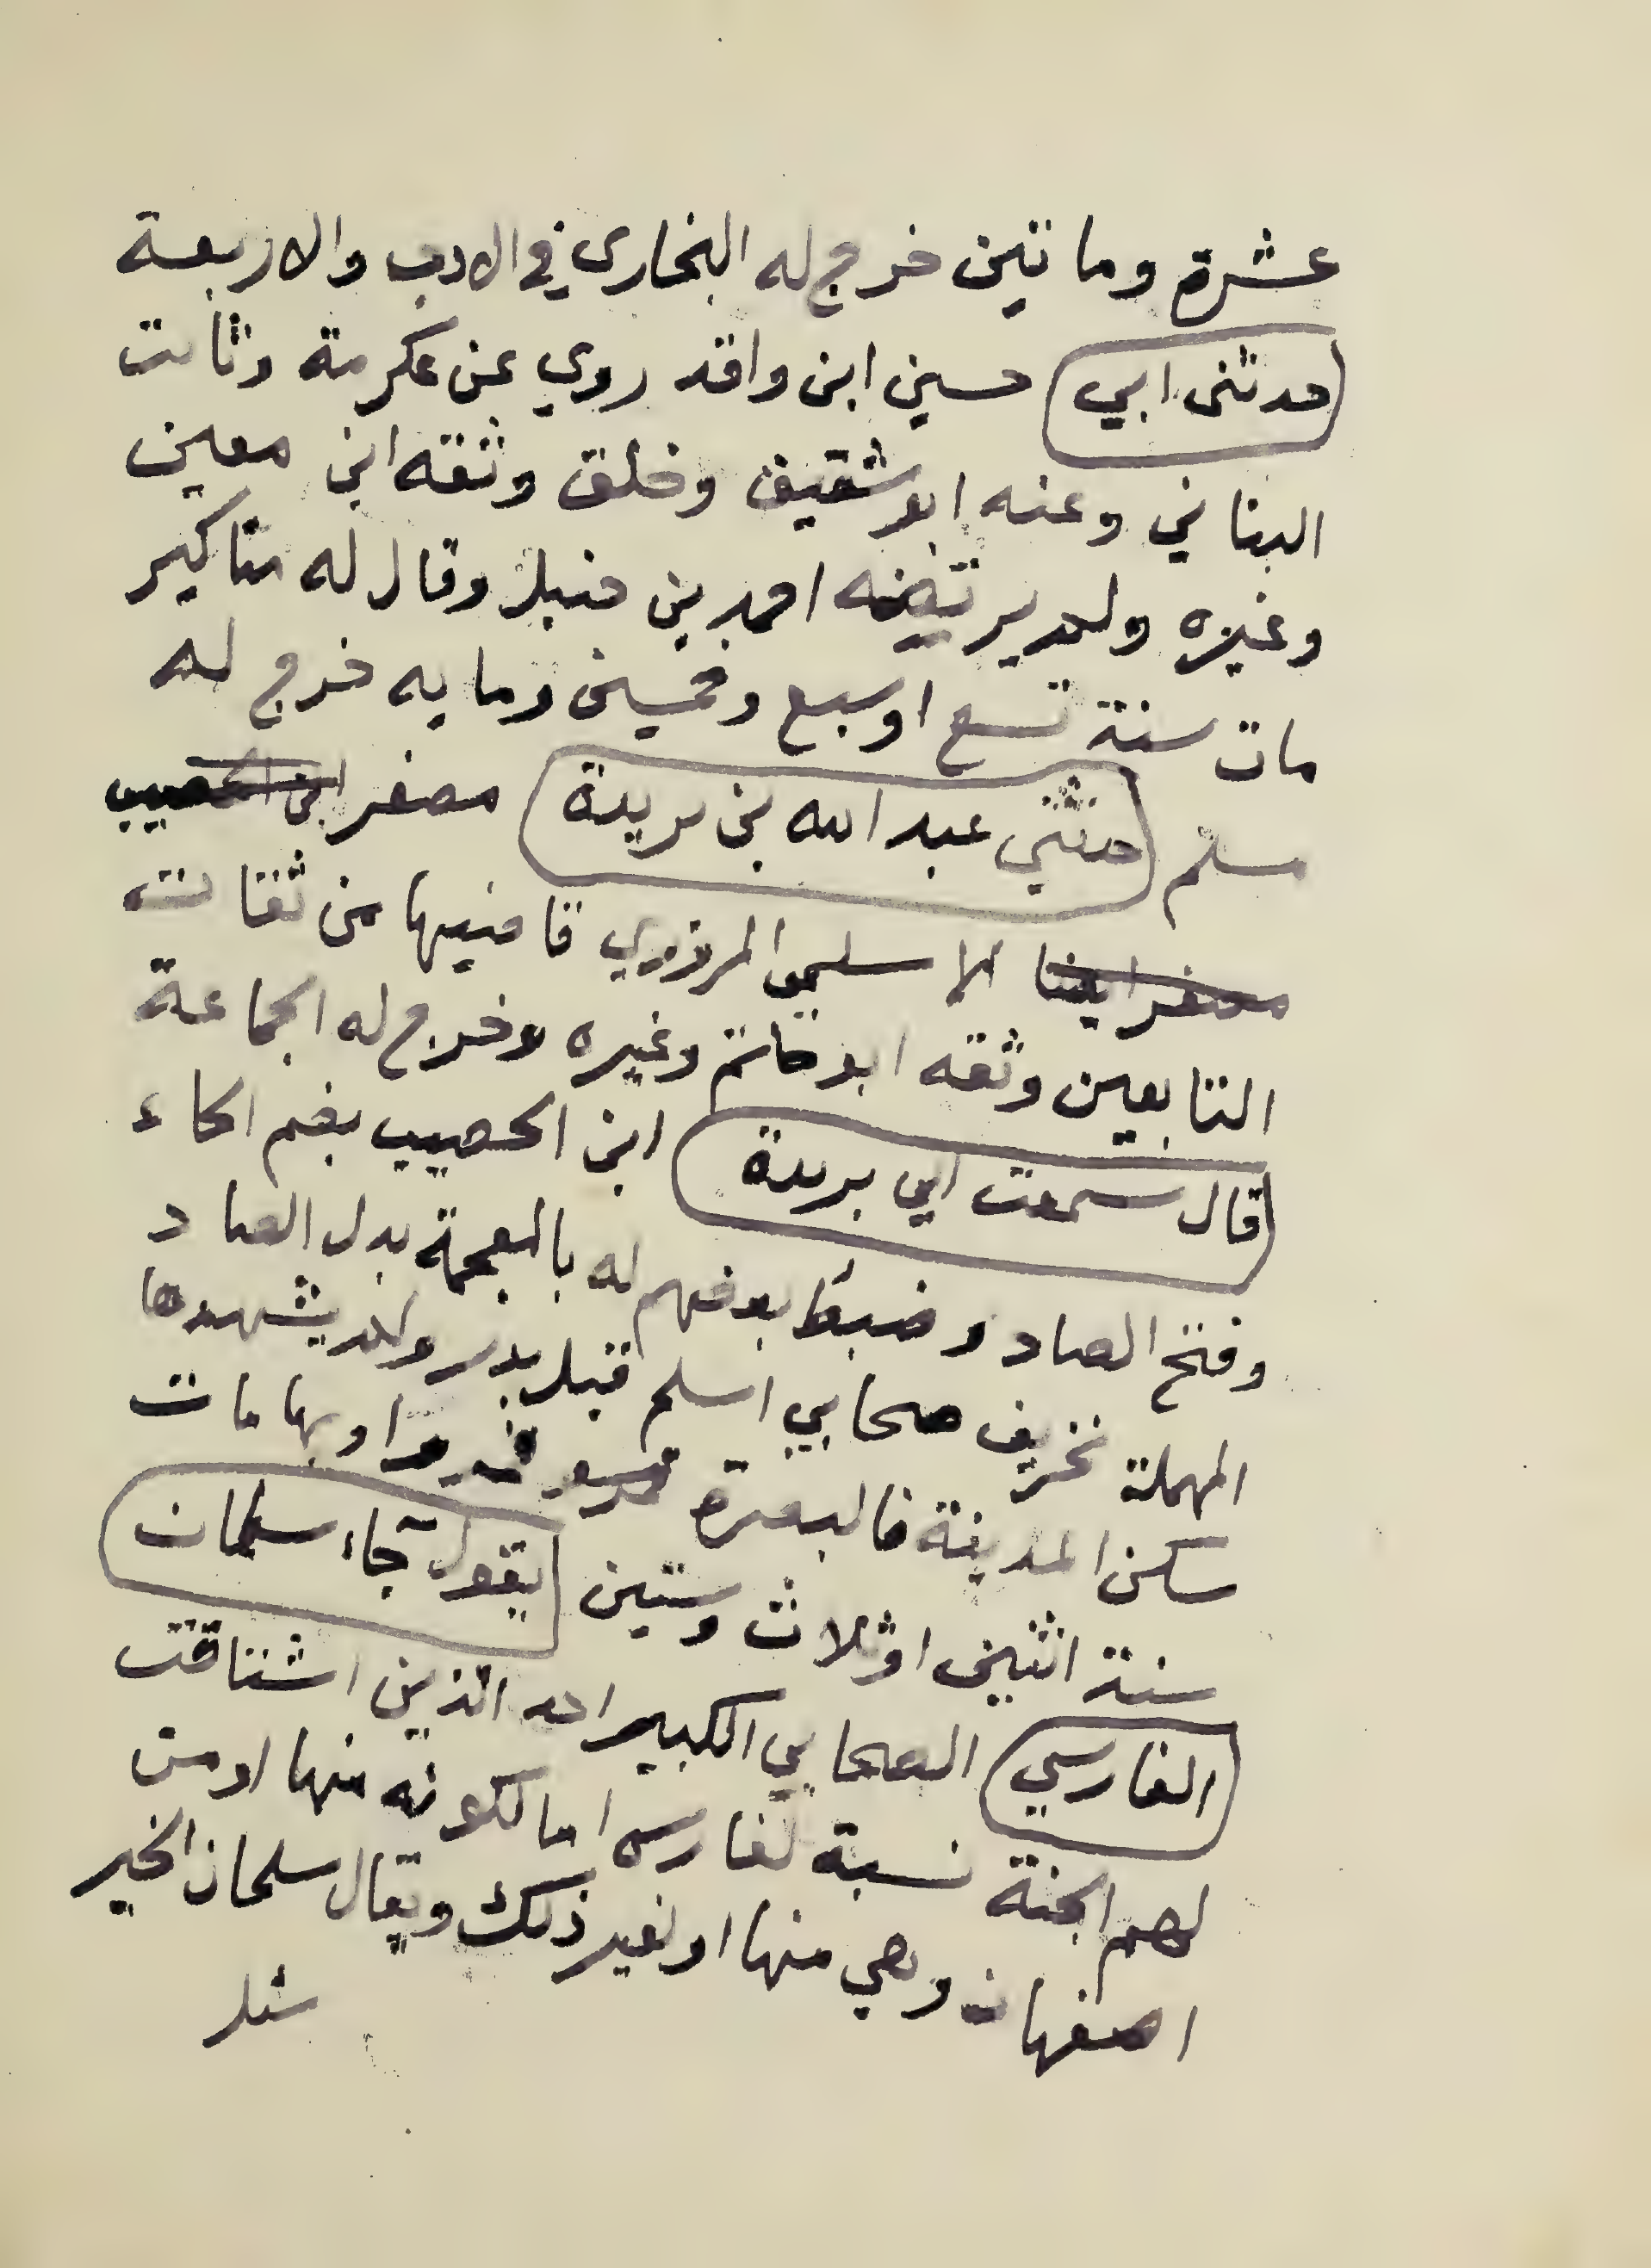 عشرة ومائتين خرج له البخاري في الادب والاربعة
حدثني ابي حسين ابن واقد روي عن عكرمة وثابت
البناني وعنه ابو شقيق وخلق وثقه ابن معين
وغيره ولم يرتضه احمد بن حنبل وقال له مناكير
مات سنة تسع او سبع وخمسين ومايه خرج له
مسلم حدثني عبد الله بن بريدة مصغر ابن الحصيب
مصغر ايضا الاسلمي المروزي قاضيها من ثقات
التابعين وثقه ابو حاتم وغيره وخرج له الجماعة
قال سمعت ابي بريدة ابن الحصيب بضم الحاء
وفتح الصاد وضبط بعضهم له بالمعجمة بدل الصاد
المهملة تحريف صحابي اسلم قبل بدر ولم يشهدها
سكن المدينة فالبصرة فمرو او بها مات
سنة اثنين او ثلاث وستين يقول جاء سلمان
الفارسي الصحابي الكبير احد الذين اشتاقت
لهم الجنة نسبة لفارس اما لكونه منها او من
اصفهان وهي منها او لغير ذلك ويقال سلمان الخير
سئل